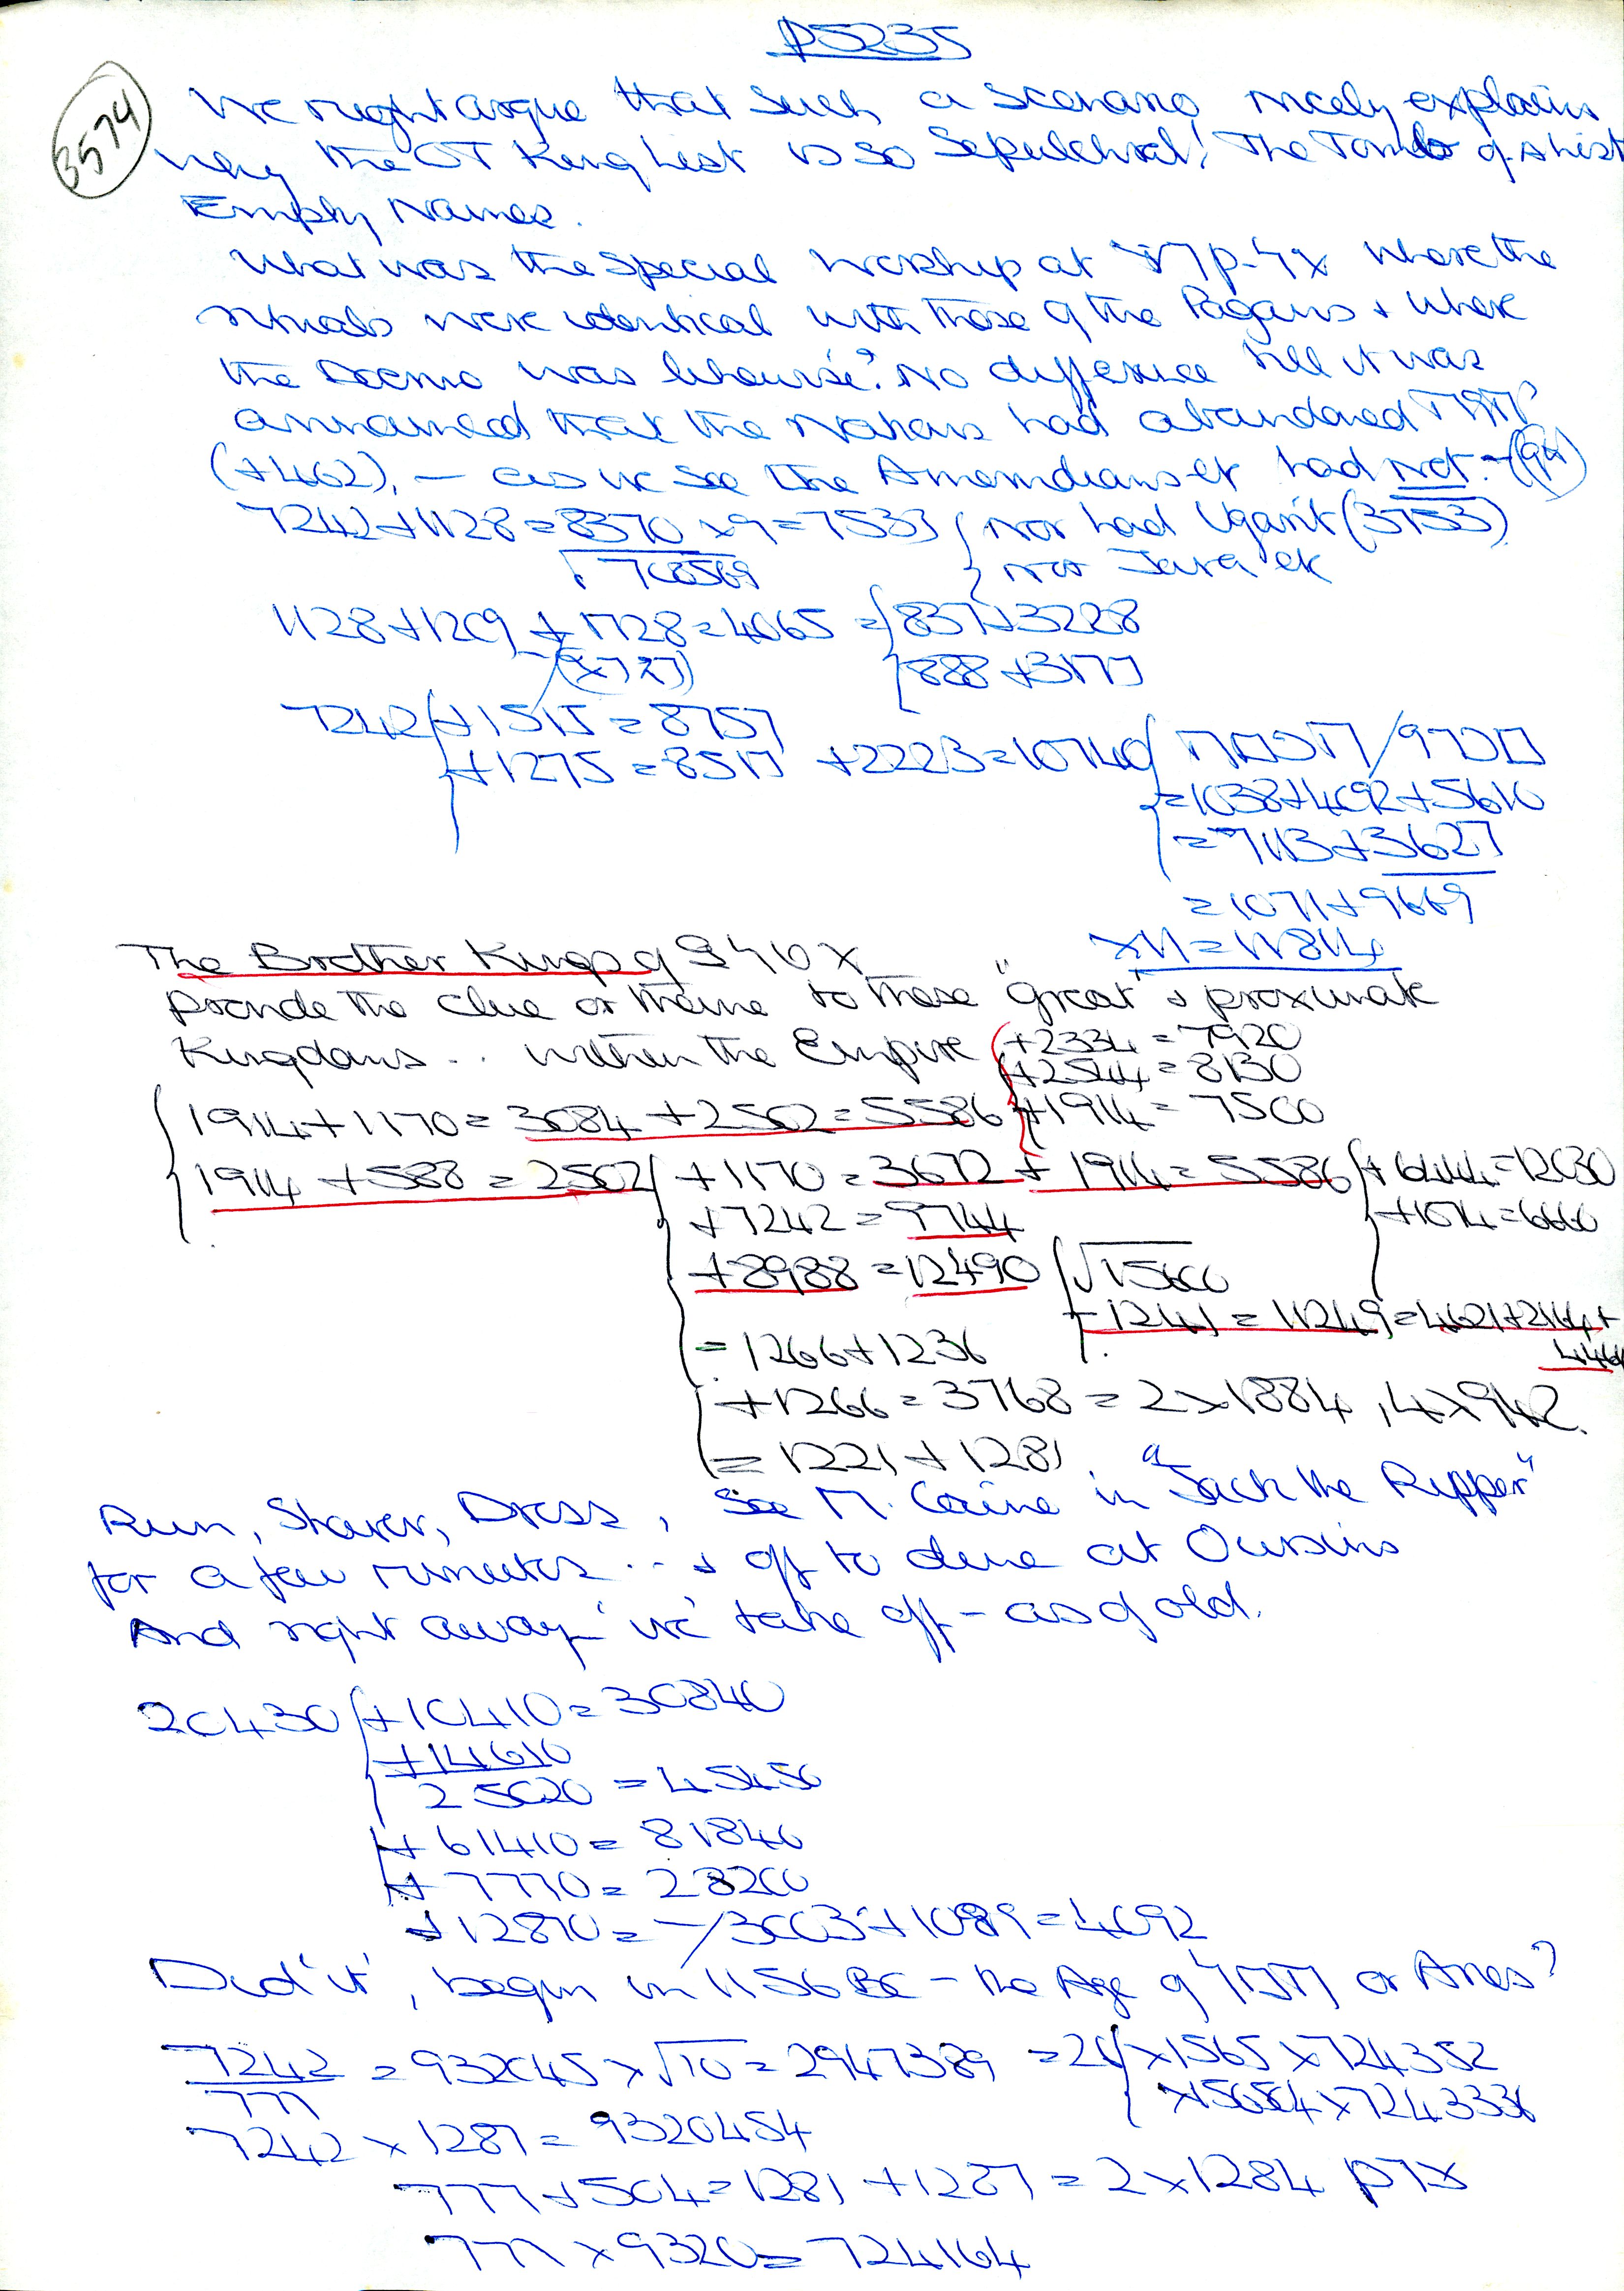 p5235
3574
We might argue that such a scenario nicely explains
why the OT King List is so Sepulchral! The Tomb of a List
Empty Names.
What was the special worship at where the
rituals were identical with those of the Pagans + where
the Daemo was likewise? No difference till it was
announced that the Nations had abandoned
(+462), — as we see the had not -
7242+1128=8370 x9=7533 { Nor had Ugarit (3753)
√708569 nor
1128+1209+1728=4065 = { 837+3228
(x727) { 888+3177
7242 { +1515=8757
+1275=8517 +2223=10740
=1038+4092+5610
=7113+3627
=1071+9669
x11=11814
The Brother Kings of
provide the clue or theme to these "great" & proximate
Kingdoms .. within the Empire { +2334=7920
+2544=8130
{ 1914+1170=3084+2502=5586 +1914=7500
1914+588=2502 { +1170=3672+1914=5586 { +6444=12030
+7242=9744 +1074=6660
+8988=12490 { √15600
-1241=11249=4621+2164+
=1266+1236
+1266=3768=2x1884, 4x942
=1221+1281
Run, Shower, Dress, See M. Caine in "Jack the Ripper"
for a few minutes ... & off to dine at Oursins
And right away 'we' take off - as of old.
20430 { +10410=30840
+14610
25020=45450
+61410=81840
+7770=28200
+12870= -/3003+1089=4092
Did 'it', begin in 1156 BC - the Age of or Aries?
7242 = 932045 x √10 = 2947389 = 24 { x1565 x724352
777 x15654x7243336
7242 x 1287 = 9320454
777+504=1281 +1287 = 2x1284
777 x9320=724164